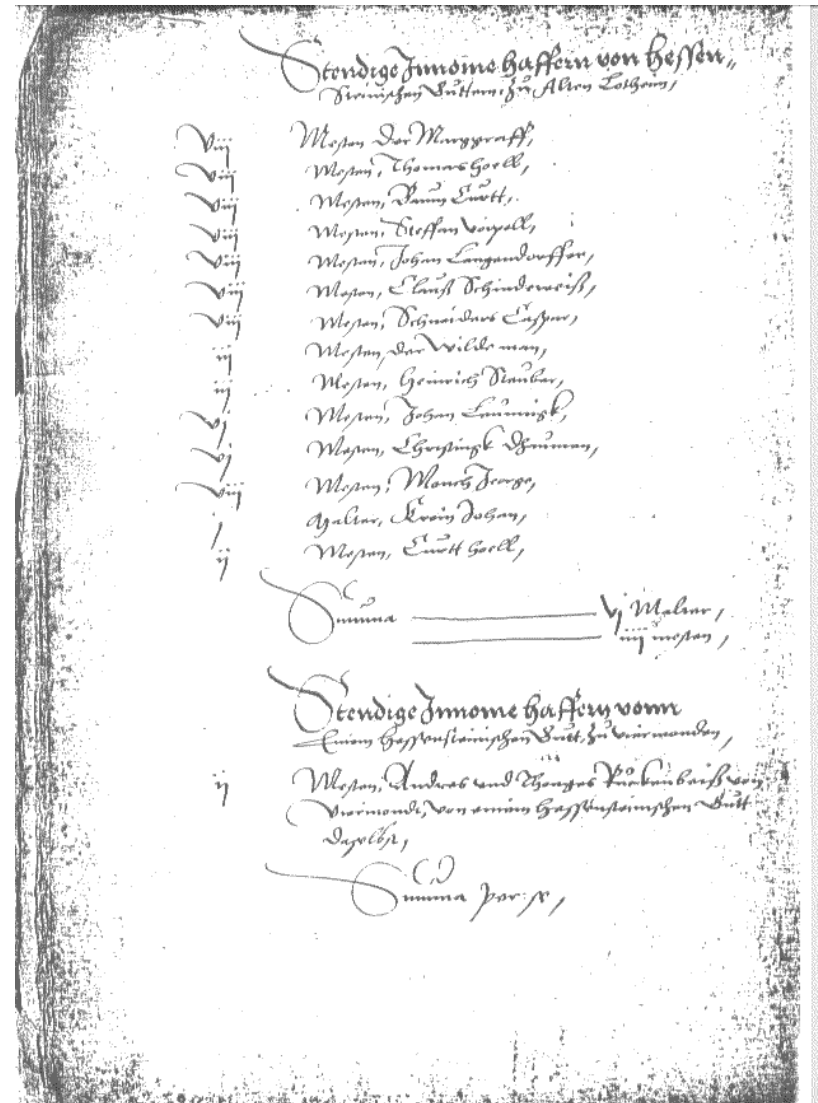 Stendige Innome haffern von Hessen„
Steinischen Guttern, zu Alten Lotheim,
viij Mesten der Marggraff,
viij Mesten, Thomas hoell,
viij Mesten, Curtt,
viij Mesten, Steffan
viij Mesten, Johan Langendorffer,
viij Mesten, Clauß Schinderreiß,
viij Mesten, Schneiders Casper,
iij Mesten, der wilde man,
iij Mesten, Heinrich Steuber,
vj Mesten, Johan
vj Mesten, Christingk
viij Mesten, Monch Jeorge,
j Malter, Krein Johan,
ij Mesten, Curtt hoell,
Summa vj Malter,
iiij mesten,
Stendige Innome haffern vonn
Einem Hessensteinischen Gutt, zu viermonden,
ij Mesten, Andres und Thonges von
Viermonde, von einem Hessensteinischen Gutt
daselbst,
Summa per se,